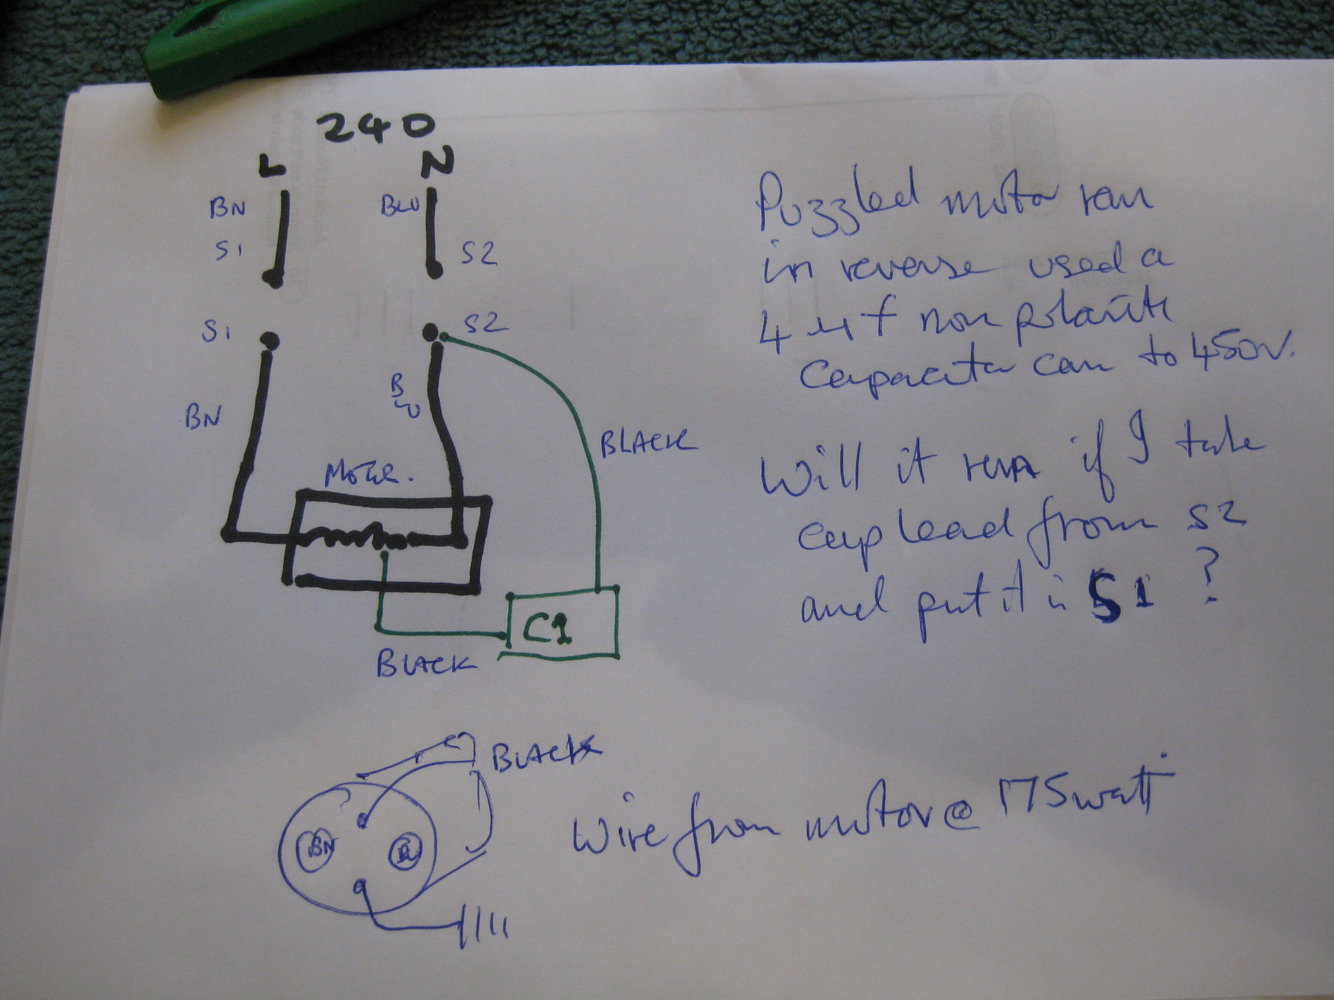 240
L N
BN BLU
S1 S2
S1 S2
BN BLU
BLACK
Motor.
C1
BLACK
Puzzled motor ran
in reverse used a
4 µf non polarite
Capacitor can to 450v.
Will it run if I take
cap lead from S2
and put it in S1 ?
BLACK
BN
Wire from motor @ 175 watt